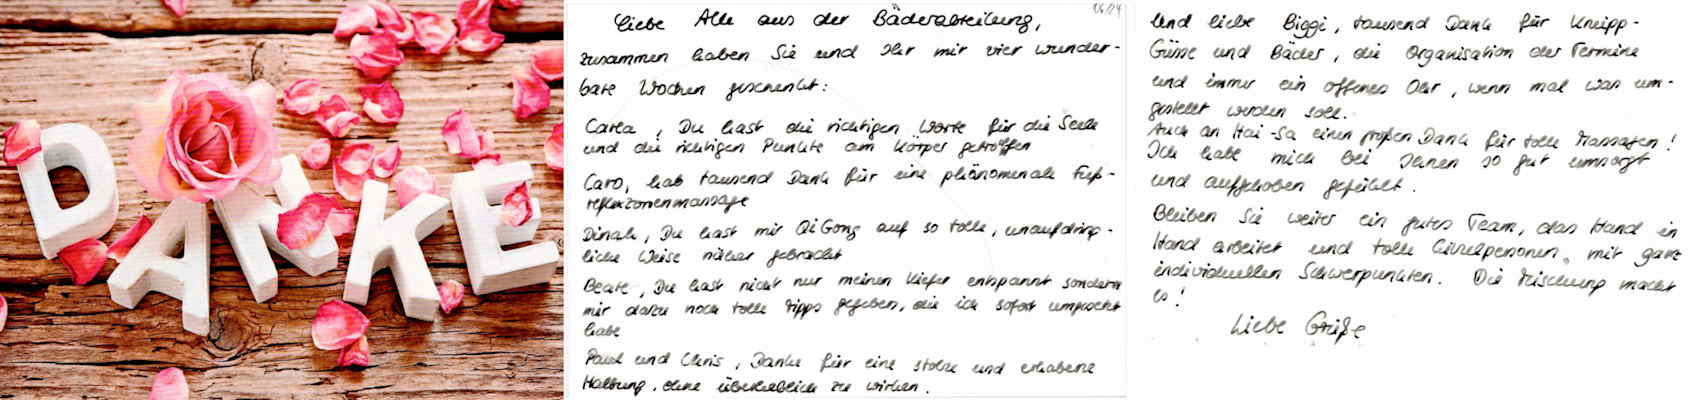 DANKE
06/24
Liebe Alle aus der Bäderabteilung,
zusammen haben Sie und Ihr mir vier wunder-
bare Wochen geschenkt:
Carla, Du hast die richtigen Worte für die Seele
und die richtigen Punkte am Körper getroffen
Caro, hab tausend Dank für eine phänomenale Fuß-
reflexzonenmassage
Dinah, Du hast mir Qi Gong auf so tolle, unaufdring-
liche Weise näher gebracht
Beate, Du hast nicht nur meinen Kiefer entspannt sondern
mir dazu noch tolle Tipps gegeben, die ich sofort umgesetzt
habe
Paul und Chris, Danke für eine stolze und erhabene
Haltung, ohne überheblich zu wirken.
Und liebe Biggi, tausend Dank für Kneipp-
Güsse und Bäder, die Organisation der Termine
und immer ein offenes Ohr, wenn mal was um-
gestellt werden soll.
Auch an Hai-Sa einen großen Dank für tolle Massagen!
Ich habe mich bei Ihnen so gut umsorgt
und aufgehoben gefühlt.
Bleiben Sie weiter ein gutes Team, das Hand in
Hand arbeitet und tolle Einzelpersonen, mit ganz
individuellen Schwerpunkten. Die Mischung macht
es!
Liebe Grüße